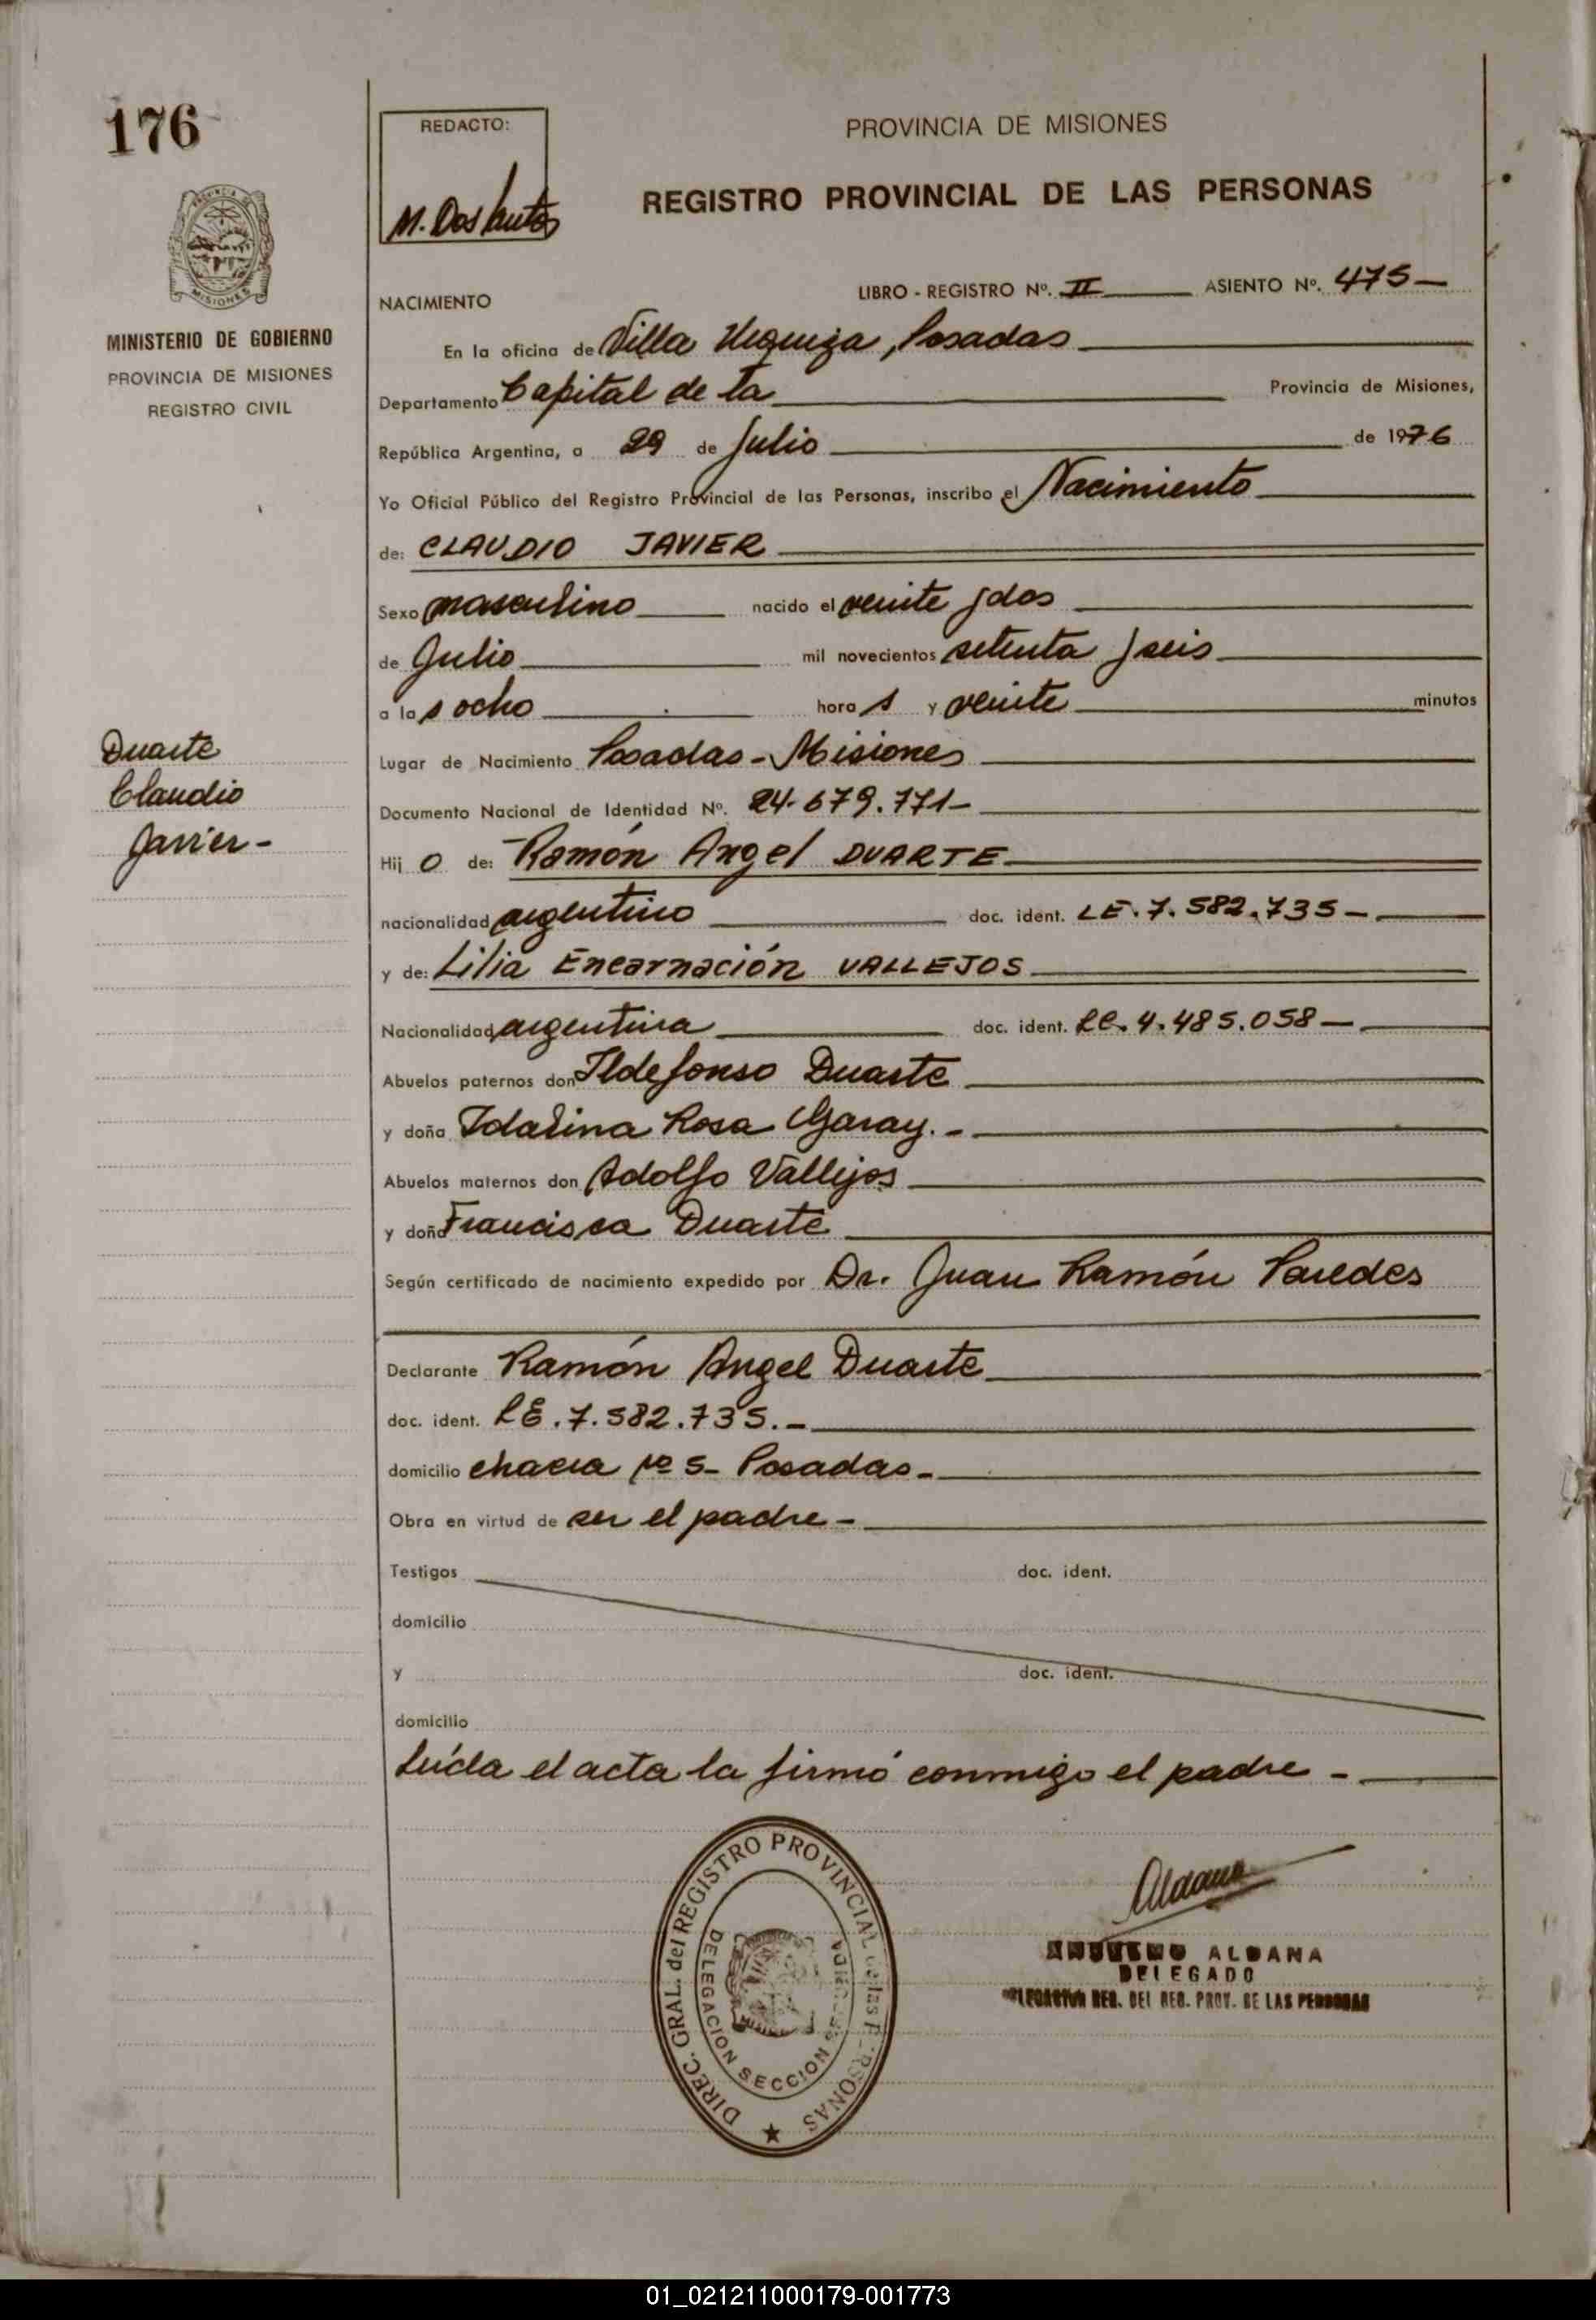 176
REDACTO:
M. Dos Santos
PROVINCIA DE MISIONES
REGISTRO PROVINCIAL DE LAS PERSONAS
PROVINCIA DE
MISIONES
MINISTERIO DE GOBIERNO
PROVINCIA DE MISIONES
REGISTRO CIVIL
LIBRO - REGISTRO Nº. II ASIENTO Nº. 475—
NACIMIENTO
En la oficina de Villa Urquiza, Posadas
Departamento Capital de la Provincia de Misiones,
República Argentina, a 29 de Julio de 1976
Yo Oficial Público del Registro Provincial de las Personas, inscribo el Nacimiento
de: CLAUDIO JAVIER
Sexo masculino nacido el veinte y dos
de Julio mil novecientos setenta y seis
a las ocho horas y veinte minutos
Duarte
Claudio
Javier-
Lugar de Nacimiento Posadas - Misiones
Documento Nacional de Identidad Nº. 24.679.771-
Hijo de: Ramón Angel DUARTE
nacionalidad argentino doc. ident. LE. 7.582.735-
y de: Lilia Encarnación VALLEJOS
Nacionalidad argentina doc. ident. LC. 4.485.058-
Abuelos paternos don Ildefonso Duarte
y doña Idalina Rosa Garay.-
Abuelos maternos don Adolfo Vallejos
y doña Francisca Duarte
Según certificado de nacimiento expedido por Dr. Juan Ramón Paredes
Declarante Ramón Angel Duarte
doc. ident. LE. 7.582.735.-
domicilio chacra Nº 5- Posadas-
Obra en virtud de ser el padre-
Testigos doc. ident.
domicilio
y doc. ident.
domicilio
Leída el acta la firmó conmigo el padre-
DIREC. GRAL. del REGISTRO PROVINCIAL de las PERSONAS
DELEGACION SECCION
Aldana
ALDANA
DELEGADO
REG. DEL REG. PROV. DE LAS PERSONAS
01_021211000179-001773